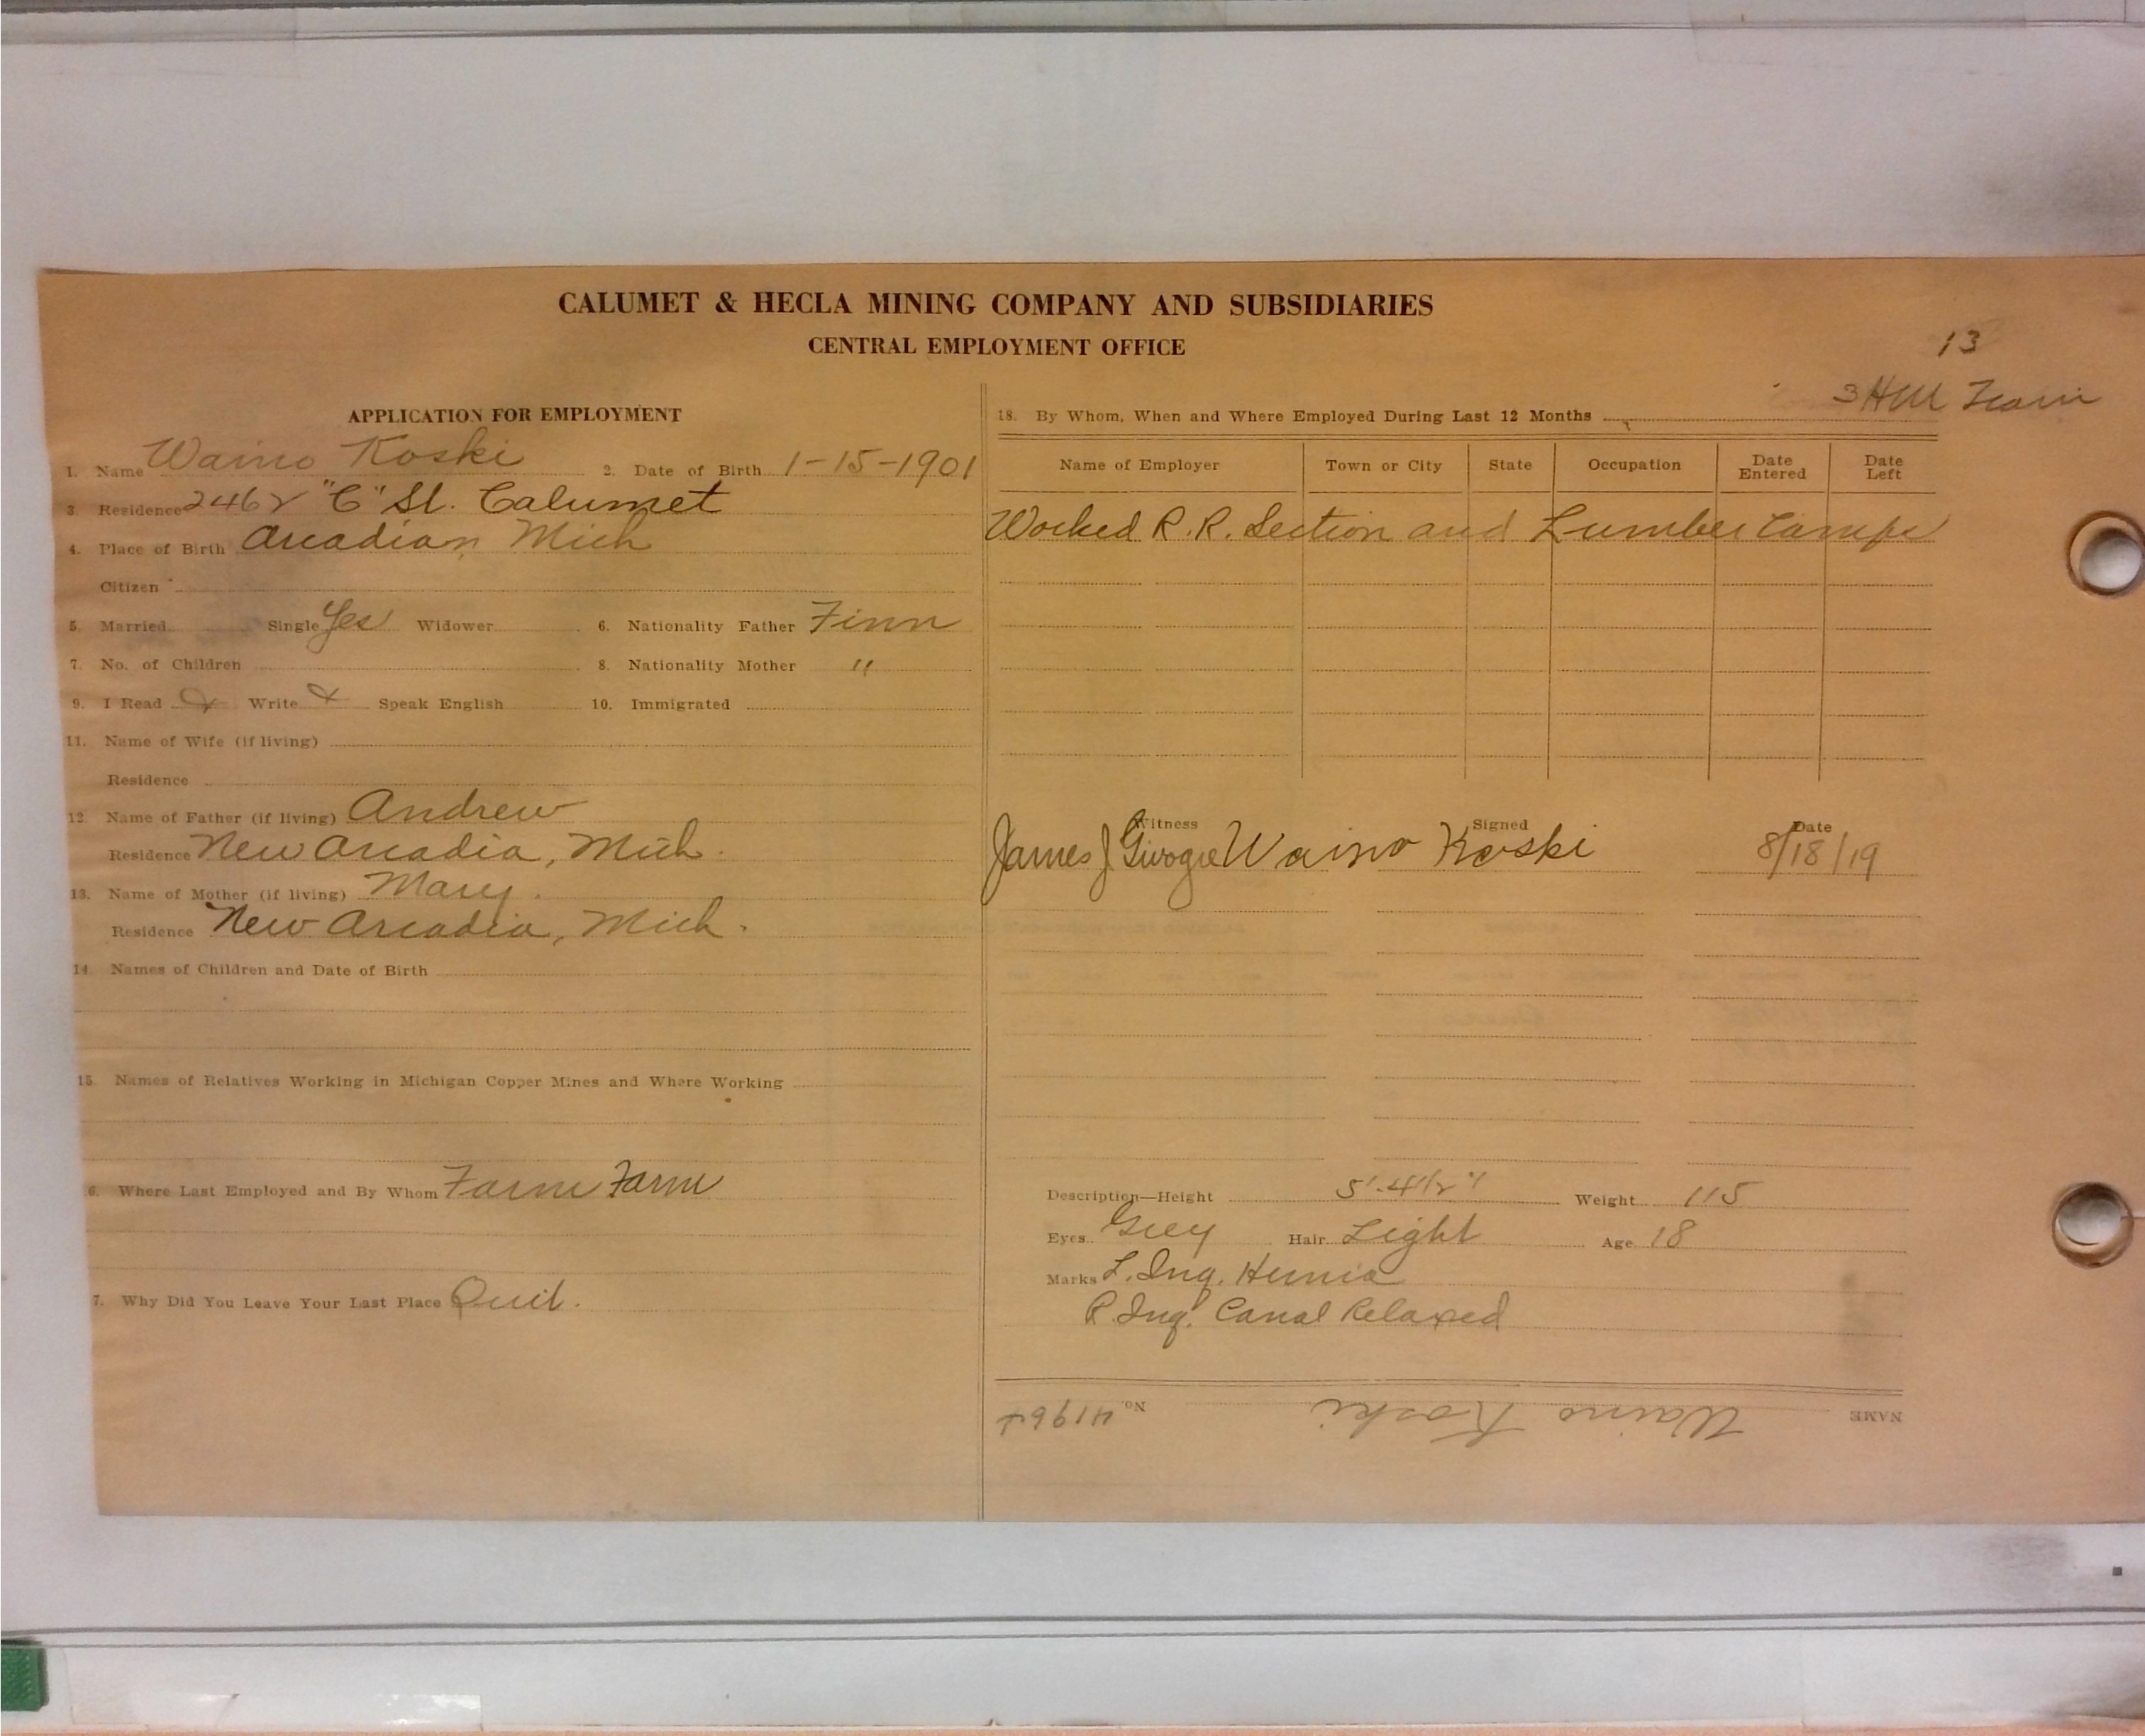 CALUMET & HECLA MINING COMPANY AND SUBSIDIARIES
CENTRAL EMPLOYMENT OFFICE
13
APPLICATION FOR EMPLOYMENT
1. Name Waino Koski 2. Date of Birth 1-15-1901
3 Residence 2462 "C" St. Calumet
4. Place of Birth Arcadian Mich
Citizen
5. Married Single Yes Widower 6. Nationality Father Finn
7. No. of Children 8. Nationality Mother "
9. I Read Write Speak English 10. Immigrated
11. Name of Wife (if living)
Residence
12. Name of Father (if living) Andrew
Residence New Arcadia, Mich.
13. Name of Mother (if living) Mary.
Residence New Arcadia, Mich.
14. Names of Children and Date of Birth
15. Names of Relatives Working in Michigan Copper Mines and Where Working
6. Where Last Employed and By Whom Farm Farm
7. Why Did You Leave Your Last Place Quit.
3
18. By Whom, When and Where Employed During Last 12 Months
Name of Employer Town or City State Occupation Date Entered Date Left
Worked R.R. Section and Lumber Camps
Witness Signed Date
James J Waino Koski 8/18/19
Description—Height 5'-4 1/2" Weight 115
Eyes Grey Hair Light Age 18
Marks L. Ing. Hernia
R. Ing. Canal Relaxed
NAME Waino Koski No.